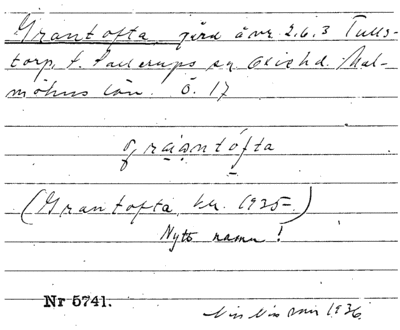 Grantofta, gård å nr 2, 6, 3 Tulls-
torp, S. Sallerups sn Oxie hd. Mal-
möhus län. Ö. 17
graantófta
(Grantofta, 1925)
Nytt namn!
Nr 5741.
1936.